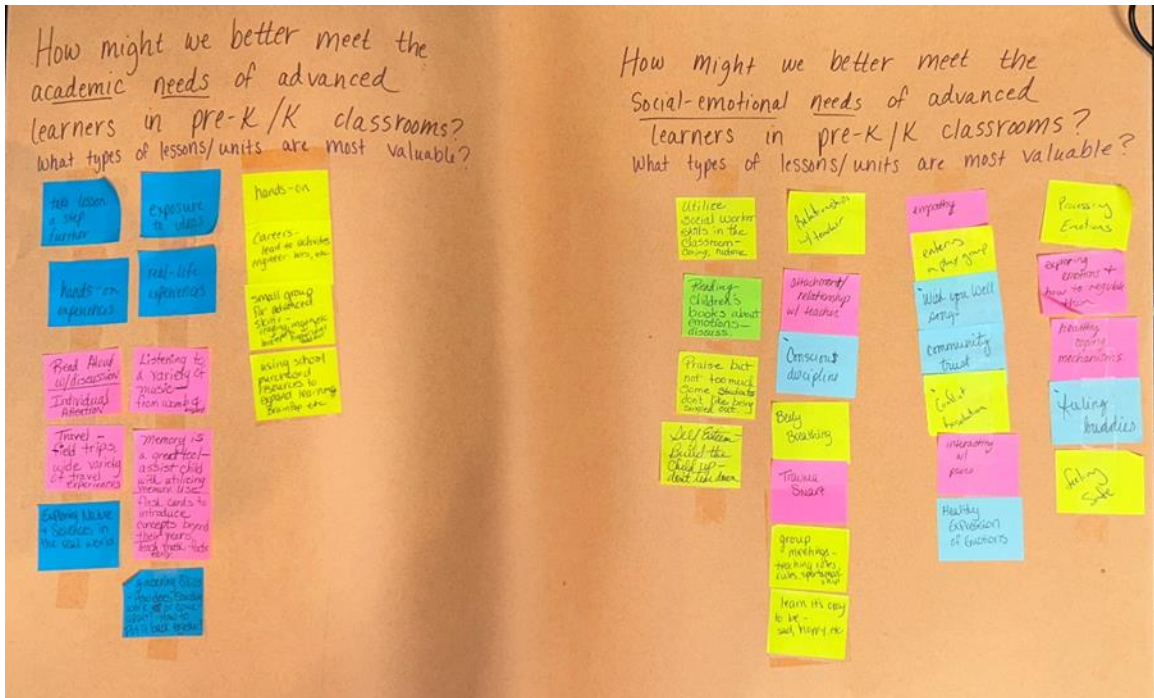 How might we better meet the
academic needs of advanced
learners in pre-K/K classrooms?
What types of lessons/units are most valuable?
take lesson
a step
further
hands-on
experiences
Read Aloud
w/discussion
Individual
Attention
Travel -
field trips,
wide variety
of travel
experiences
Exploring Nature
+ Sciences in
the real world
exposure
to ideas
real-life
experiences
Listening to
a variety of
music
from womb
Memory is
a great tool-
assist child
with utilizing
memory. Use
flash cards to
introduce
concepts beyond
their years,
teach these facts
early.
hands-on
Careers-
lead to activities
engineer
small group
for advanced
skills-
using school
purchased
resources to
expand learning
etc
How might we better meet the
Social-emotional needs of advanced
learners in pre-K/K classrooms?
What types of lessons/units are most valuable?
Utilize
social worker
skills in the
classroom-
Reading
children's
books about
emotions-
discuss.
Praise but
not too much
some students
don't like being
singled out.
Self Esteem
Build the
Child up-
don't
Relationships
w/teacher
attachment/
relationship
w/ teacher
Conscious
discipline
Belly
Breathing
Trauma
Smart
group
meetings-
teaching
rules, sportsmanship
learn it's okay
to be-
sad, happy, etc
empathy
entering
a play group
Wish you Well
songs
community
trust
Conflict
resolution
interacting
w/
peers
Healthy
Expression
of Emotions
Processing
Emotions
exploring
emotions +
how to regulate
them
healthy
coping
mechanisms
feeling
buddies
feeling
safe